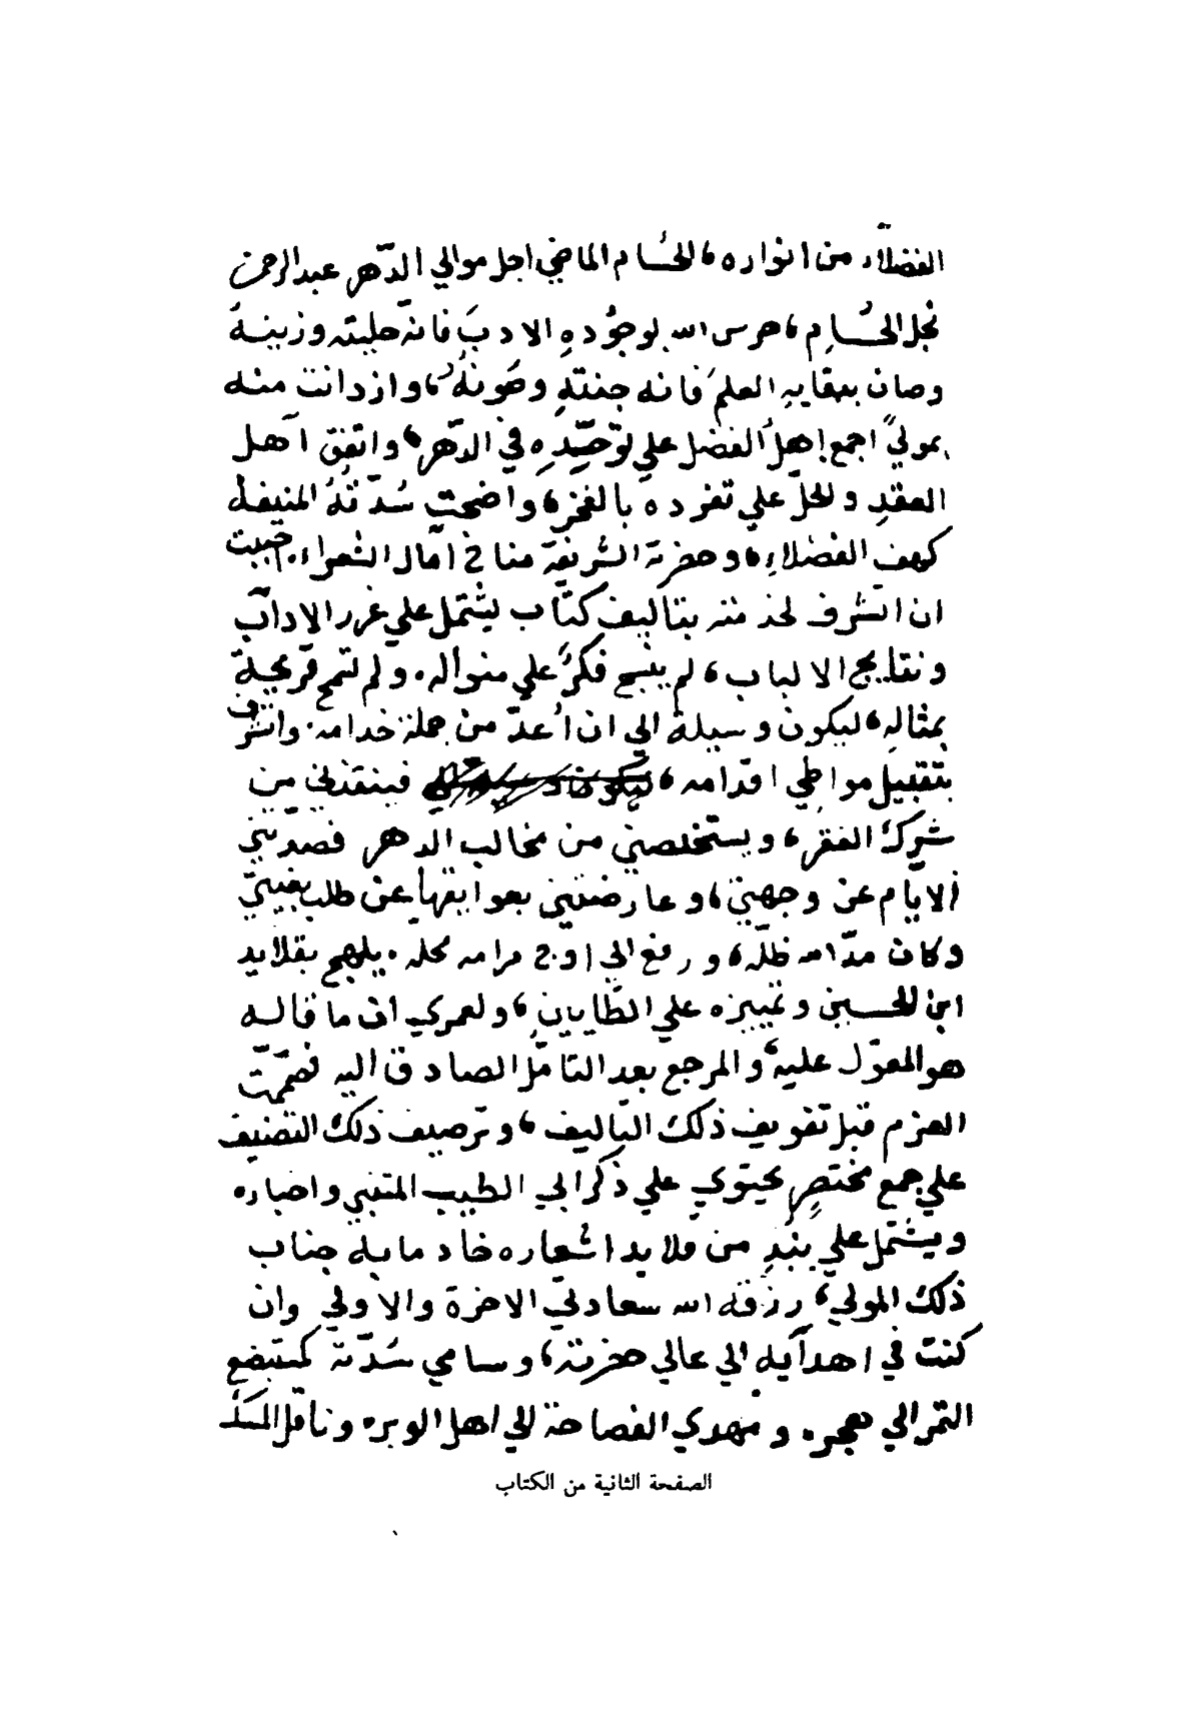 الفضلاَّء من انواره، الحُسام الماضي اجل موالي الدّهر عبدالرحمن
نجل الحُسامِ، حرس الله بوجُودهِ الادبَ فانه حليته وزينهُ
وصان ببقايهِ العلمَ فانه جنتهِ وصَونهُ، وازدانت منه
بموليً اجمع اهلُ الفضل علي توحّدِهِ في الدّهر، واتفق اهل
العقدِ والحلّ علي تفرده بالفخر، واضحت سُدّتهُ المنيفة
كهف الفضلاءِ، وحضرته الشريفة مناخ آمال الشعراء. احببت
ان اتشرف لخدمته بتاليف كتاب يشتمل علي غرر الاداب
ونتايج الالباب، لم ينسج فكرٌ علي منواله. ولم تسمح قريحة
بمثالهِ، ليكون وسيلة الي ان اُعدّ من جملة خدامه. واتشرف
بتقبيل مواطي اقدامه، فينقذني من
شَرَك الفقر، ويستخلصني من مخالب الدهر فصدّتني
الايّام عن وجهتي، وعارضتني بعوايقها عن طلب بغيتي
وكان مدّ الله ظلّه، ورفع الي اوج مرامه محله. يلهج بقلايد
ابي الحسين وتمييزه علي الطايين، ولعمري ان ما قاله
هو المعوّل عليه، والمرجع بعد التامّل الصادق اليه فصمّمت
العزم قبل تفويف ذلك التاليف، وترصيف ذلك التصنيف
علي جمع مختصرٍ يحتوي علي ذكر ابي الطيب المتنبي واخباره
ويشتمل علي نبذٍ من قلايد اشعاره خادما به جناب
ذلك المولي، رزقه الله سعادتي الاخرة والاولي وان
كنت في اهدآيه الي عالي حضرته، وسامي سُدّته كمستبضع
التمر الي هجر. ومهدي الفصاحة الي اهل الوبر. وناقل المسك
الصفحة الثانية من الكتاب